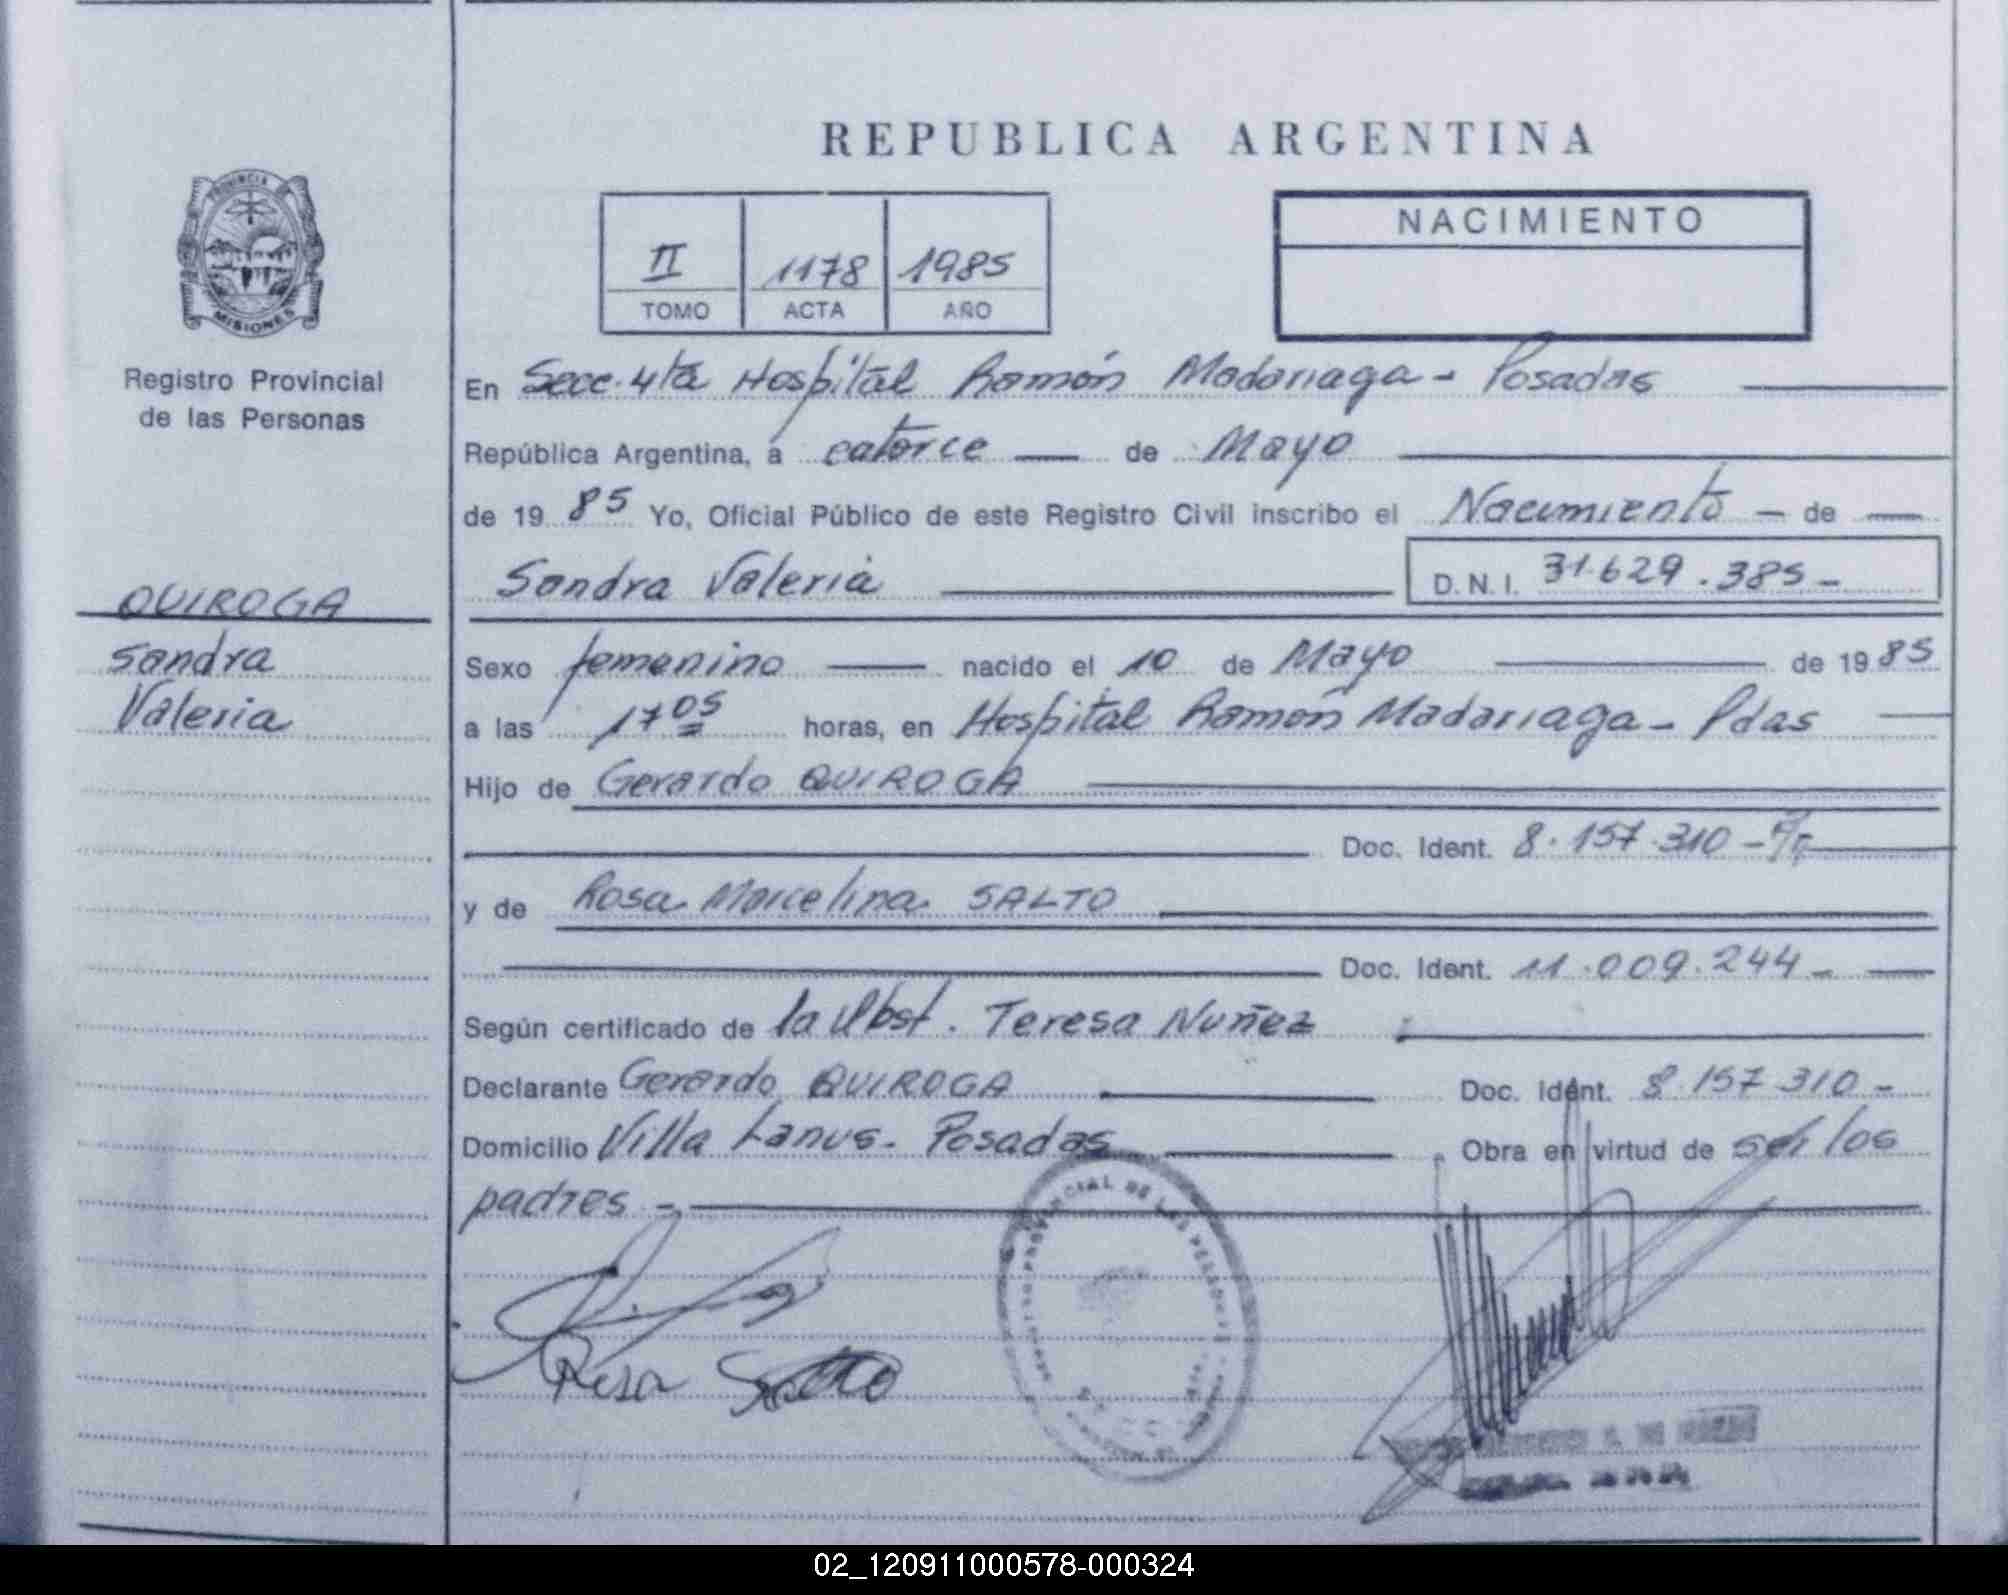 REPUBLICA ARGENTINA
PROVINCIA DE
MISIONES
Registro Provincial
de las Personas
II 1178 1985
TOMO ACTA AÑO
NACIMIENTO
En Secc. 4ta Hospital Ramón Madariaga - Posadas
República Argentina, a catorce de Mayo
de 1985 Yo, Oficial Público de este Registro Civil inscribo el Nacimiento - de
Sandra Valeria D.N.I. 31.629.385-
QUIROGA
Sandra
Valeria
Sexo femenino nacido el 10 de Mayo de 1985
a las 17 05 horas, en Hospital Ramón Madariaga - Pdas
Hijo de Gerardo QUIROGA
Doc. Ident. 8.157.310 -
y de Rosa Marcelina SALTO
Doc. Ident. 11.009.244 -
Según certificado de la Obst. Teresa Nuñez
Declarante Gerardo QUIROGA Doc. Ident. 8.157.310 -
Domicilio Villa Lanus - Posadas Obra en virtud de ser los
padres -
PROVINCIAL DE LAS PERSONAS
Rosa Salto
02_120911000578-000324